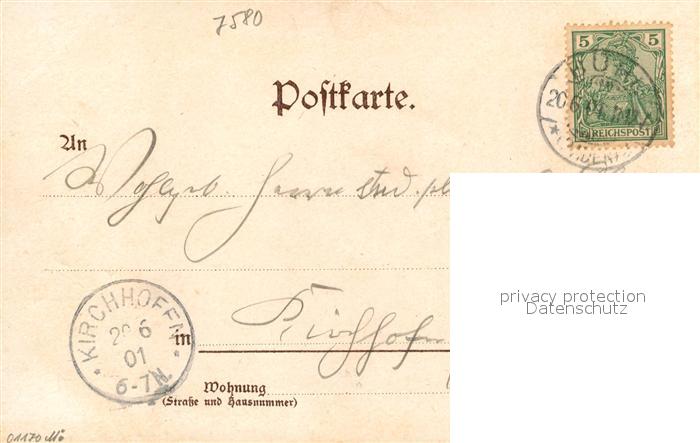 7580
5 5
REICHSPOST
20 6 01
(BADEN)
Postkarte.
An
Wohlgeb. Herrn stud.
privacy protection
Datenschutz
KIRCHHOFEN
6
01
6-7N.
in Kirchhofen
Wohnung
(Straße und Hausnummer)